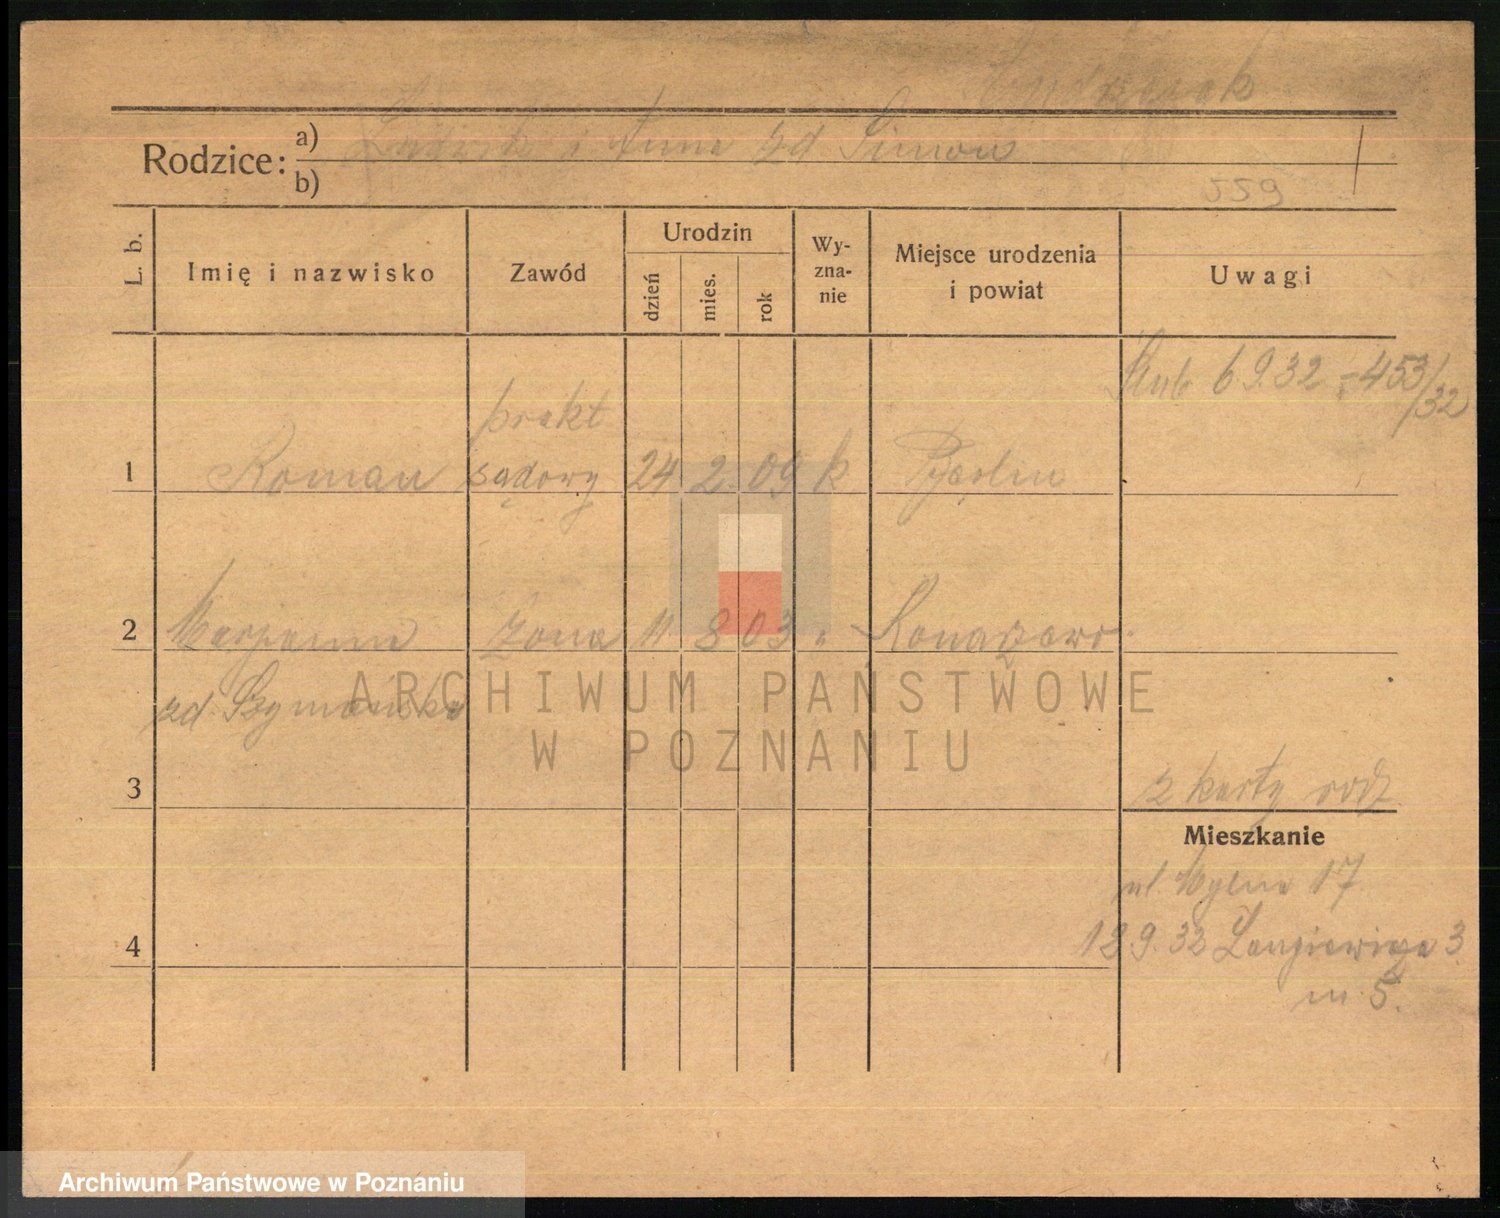 Rodzice:
a) i Anna zd Simon
b)
559
L. b.
Imię i nazwisko
Zawód
Urodzin
dzień
mies.
rok
Wy-
zna-
nie
Miejsce urodzenia
i powiat
Uwagi
ślub 6 9.32 - 453/32
prakt
1 Roman sądowy 24 2 09 k
2 Marjanna żona 11 8 03 " Konarzewo
zd. Szymańska
3
z karty rodz
Mieszkanie
ul. Mylna 17
4
12 9. 32 Langiewicza 3
m 5.
ARCHIWUM PAŃSTWOWE
W POZNANIU
Archiwum Państwowe w Poznaniu